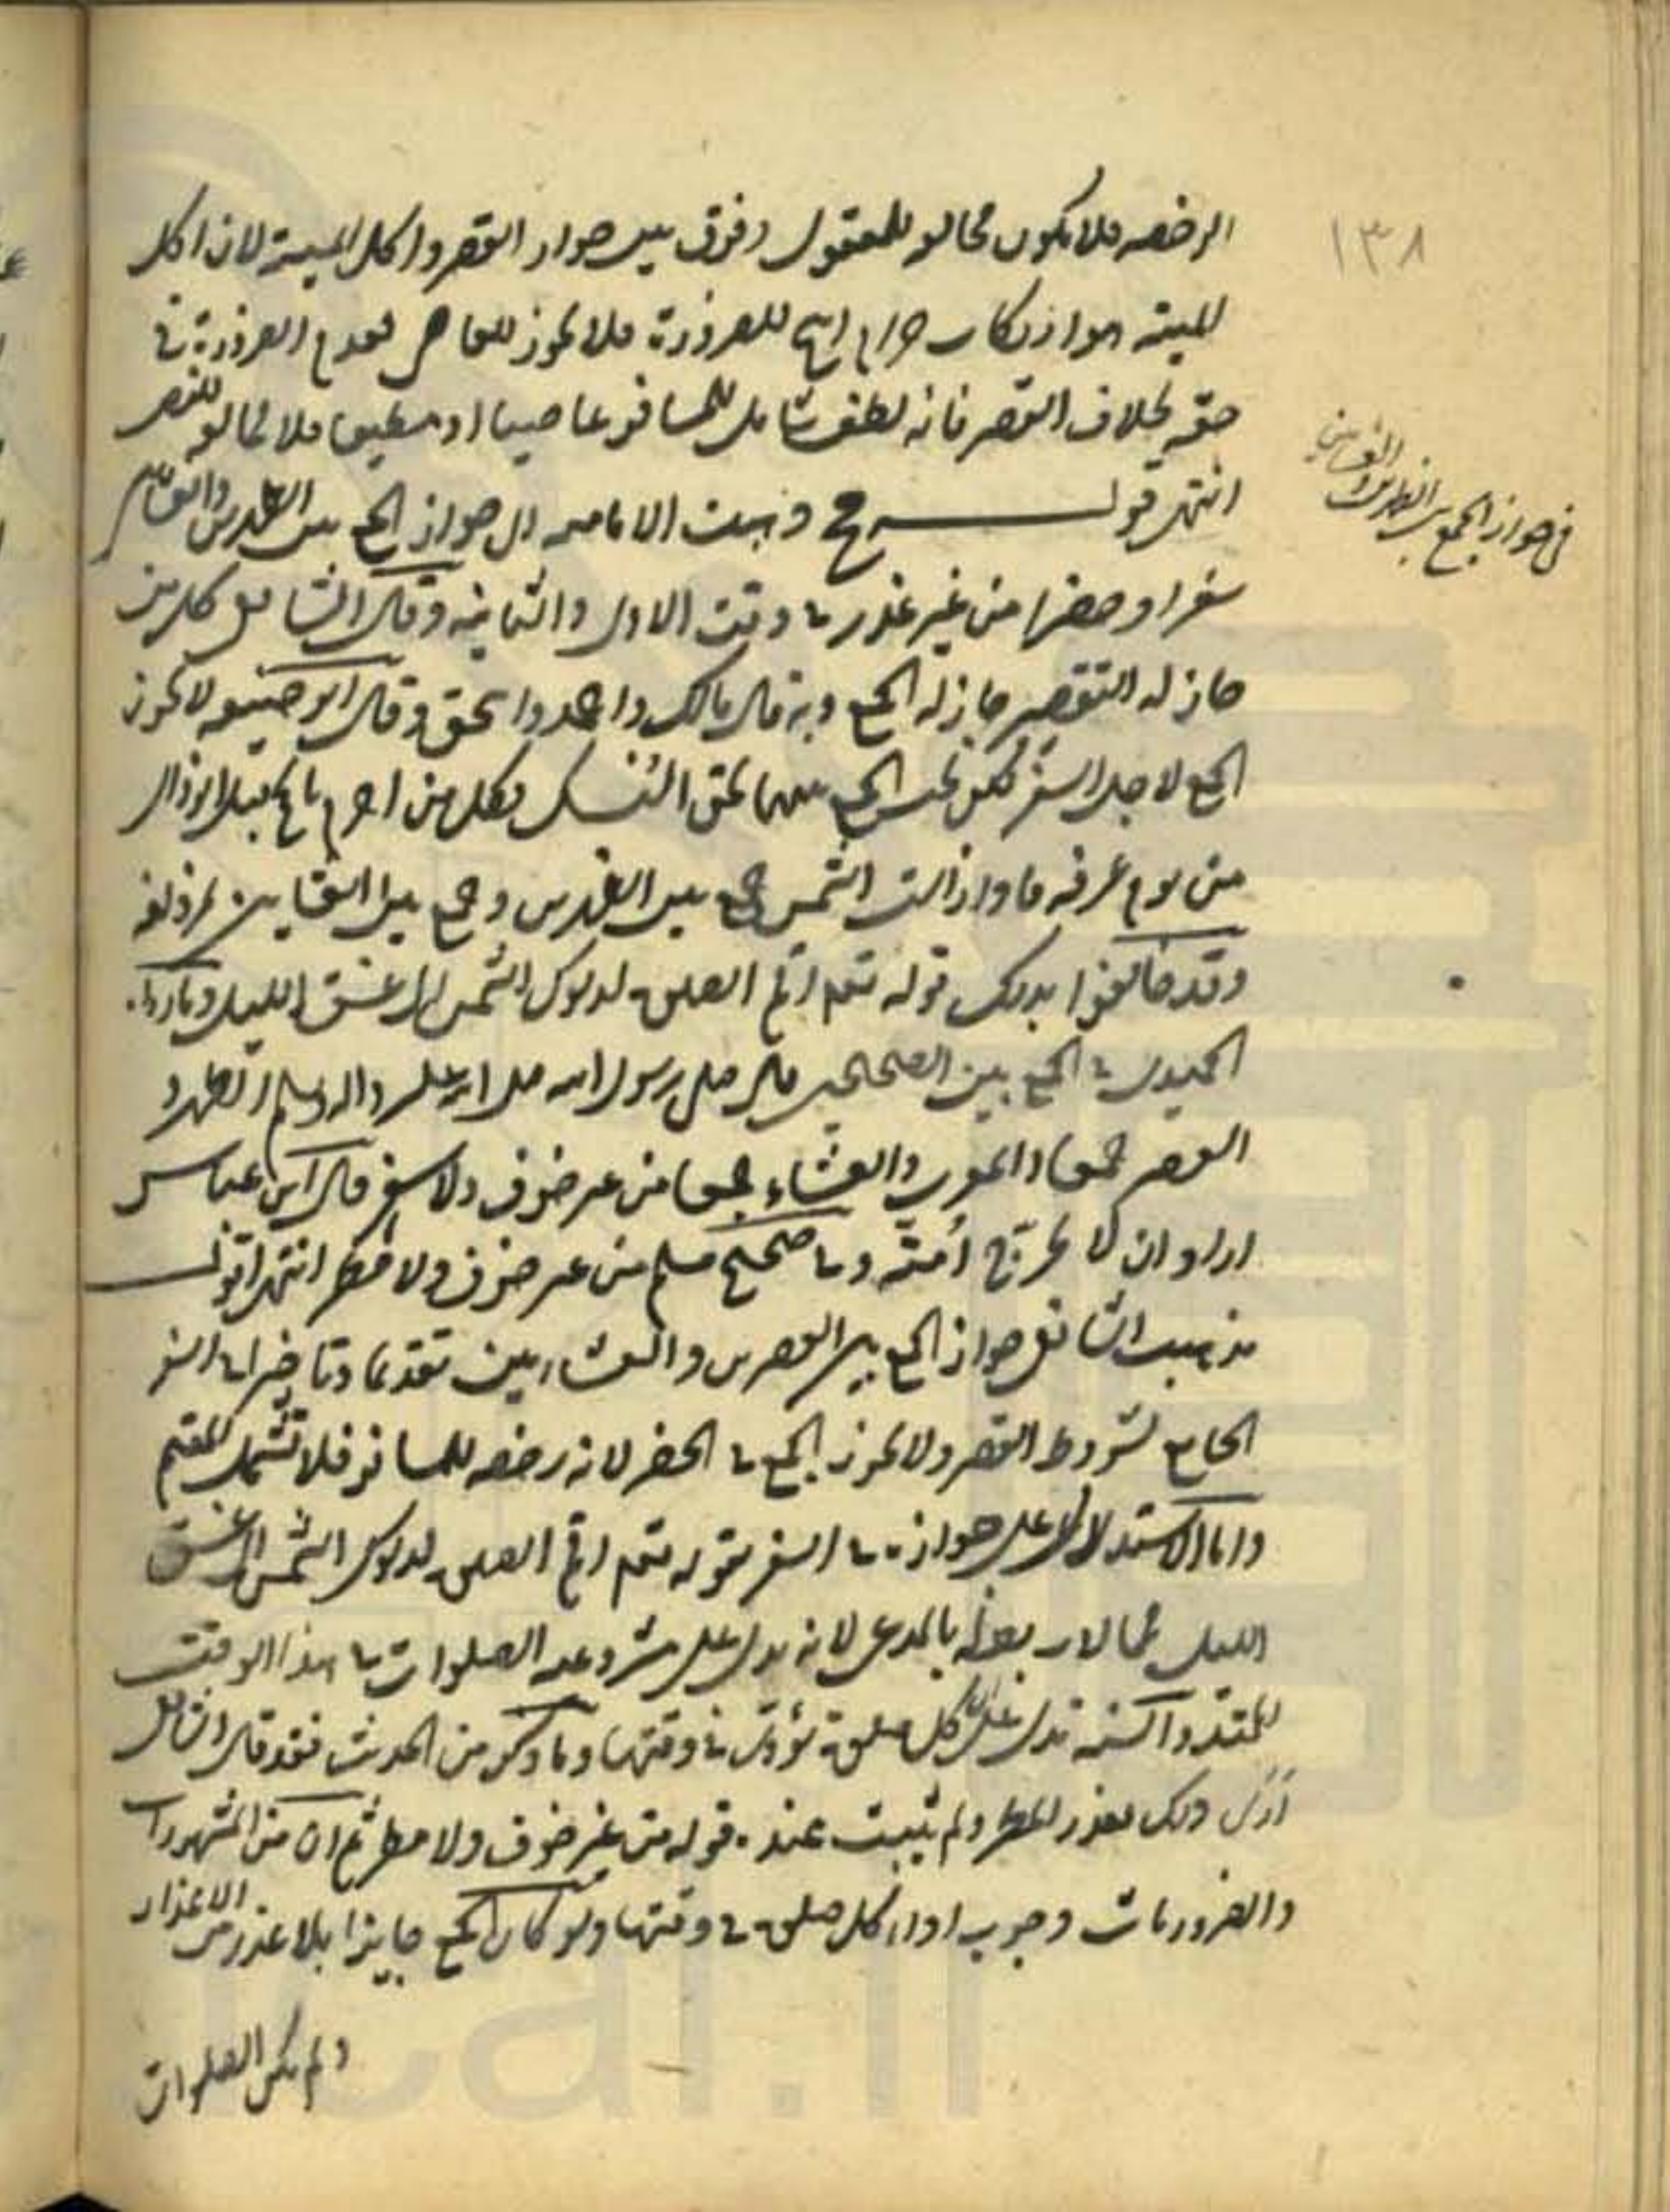 ١٣٨
الرخصه فلا يكون مخالفه للمعقول وفرق بين جواز القصر واكل الميتة لان اكل
الميته هو ارتكاب حرام ابيح للضرورة فلا يجوز للعاصى لعدم الضرورة فى
حقه بخلاف القصر فانه لطف شامل للمسافر عاصيا او مطيعا فلا يخالف للنص
انتهى قولــه ح ذهبت الاماميه الى جواز الجمع بين الظهرين والعشائين
فى جواز الجمع بين الظهرين والعشائين
سفرا وحضرا من غير عذر فى وقت الاولى والثانيه وقال الشافعى كل من
جاز له التقصير جاز له الجمع وبه قال مالك واحمد واسحق وقال ابو حنيفه لا يجوز
الجمع لاجل السفر لكن يجب الجمع بينهما بحق النسك فكل من احرم بالحج قبل الزوال
من يوم عرفه فاذا زالت الشمس جمع بين الظهرين وجمع بين العشاين بمزدلفه
وقد خالفوا بذلك قوله تعم اقم الصلوة لدلوك الشمس الى غسق الليل وما رواه
الحميدى فى الجمع بين الصحيحين قال صلى رسول الله صلى الله عليه واله وسلم الظهر و
العصر جمعا والمغرب والعشاء جمعا من غير خوف ولا سفر قال ابن عباس
اراد ان لا يحرّج أمته وفى صحيح مسلم من غير خوف ولا مطر انتهى اقولــ
مذهب الشافعى جواز الجمع بين العصرين والعشاءين تقديما وتاخيرا فى السفر
الجامع لشروط القصر ولا يجوز الجمع فى الحضر لانه رخصه للمسافر فلا تشمل المقيم
واما الاستدلال على جوازه فى السفر بقوله تعم اقم الصلوة لدلوك الشمس الى غسق
الليل فما لا ربط له بالمدعى لانه يدل على مشروعيه الصلوات فى هذا الوقت
الممتد والسنه تدل على ان كل صلوة تؤدى فى وقتها وما ذكر من الحديث فقد قال الشافعى
أرى ذلك بعذر المطر ولم يثبت عنده قوله من غير خوف ولا مطر ثم ان من المشهورات
والضروريات وجوب اداء كل صلوة فى وقتها ولو كان الجمع جايزا بلا عذر من الاعذار
ولم يكن الصلوات